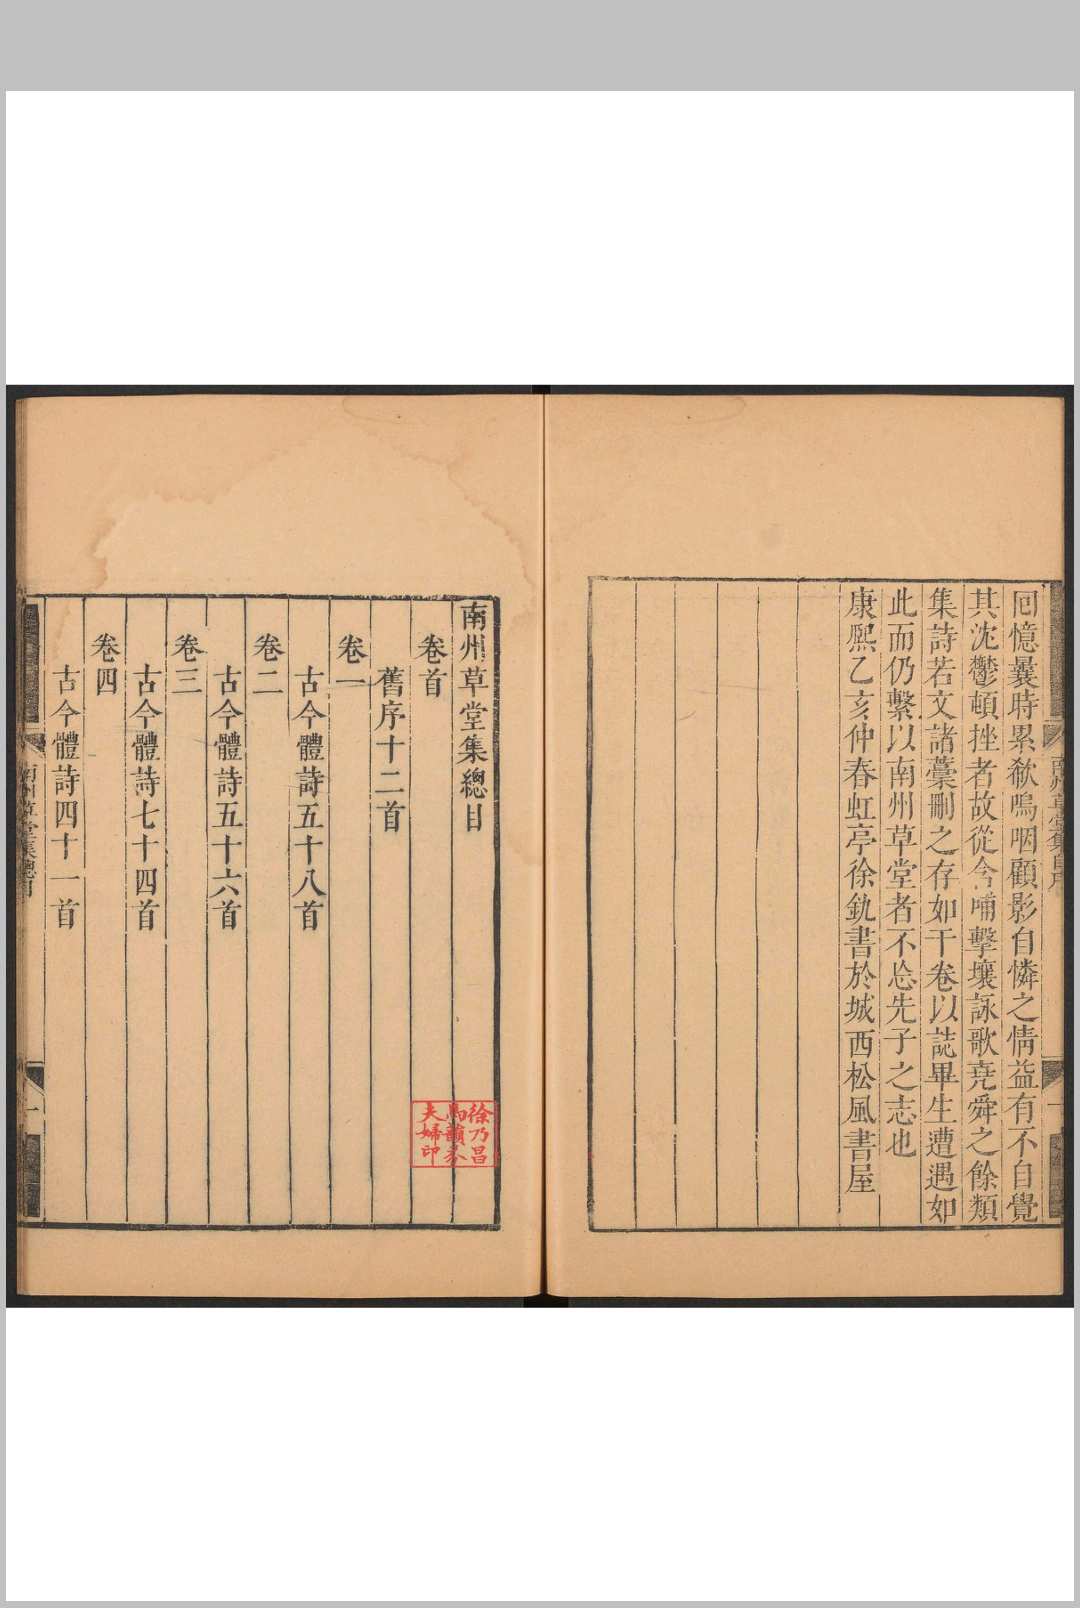 回憶曩時累欷嗚咽顧影自憐之情益有不自覺
其沈鬱頓挫者故從今哺擊壤詠歌堯舜之餘類
集詩若文諸藁刪之存如干卷以誌畢生遭遇如
此而仍繫以南州草堂者不忘先子之志也
康熙乙亥仲春虹亭徐釚書於城西松風書屋
南州草堂集自序
南州草堂集總目
卷首
舊序十二首
卷一
古今體詩五十八首
卷二
古今體詩五十六首
卷三
古今體詩七十四首
卷四
古今體詩四十一首
南州草堂集總目
一
徐乃昌
馬韻芬
夫婦印